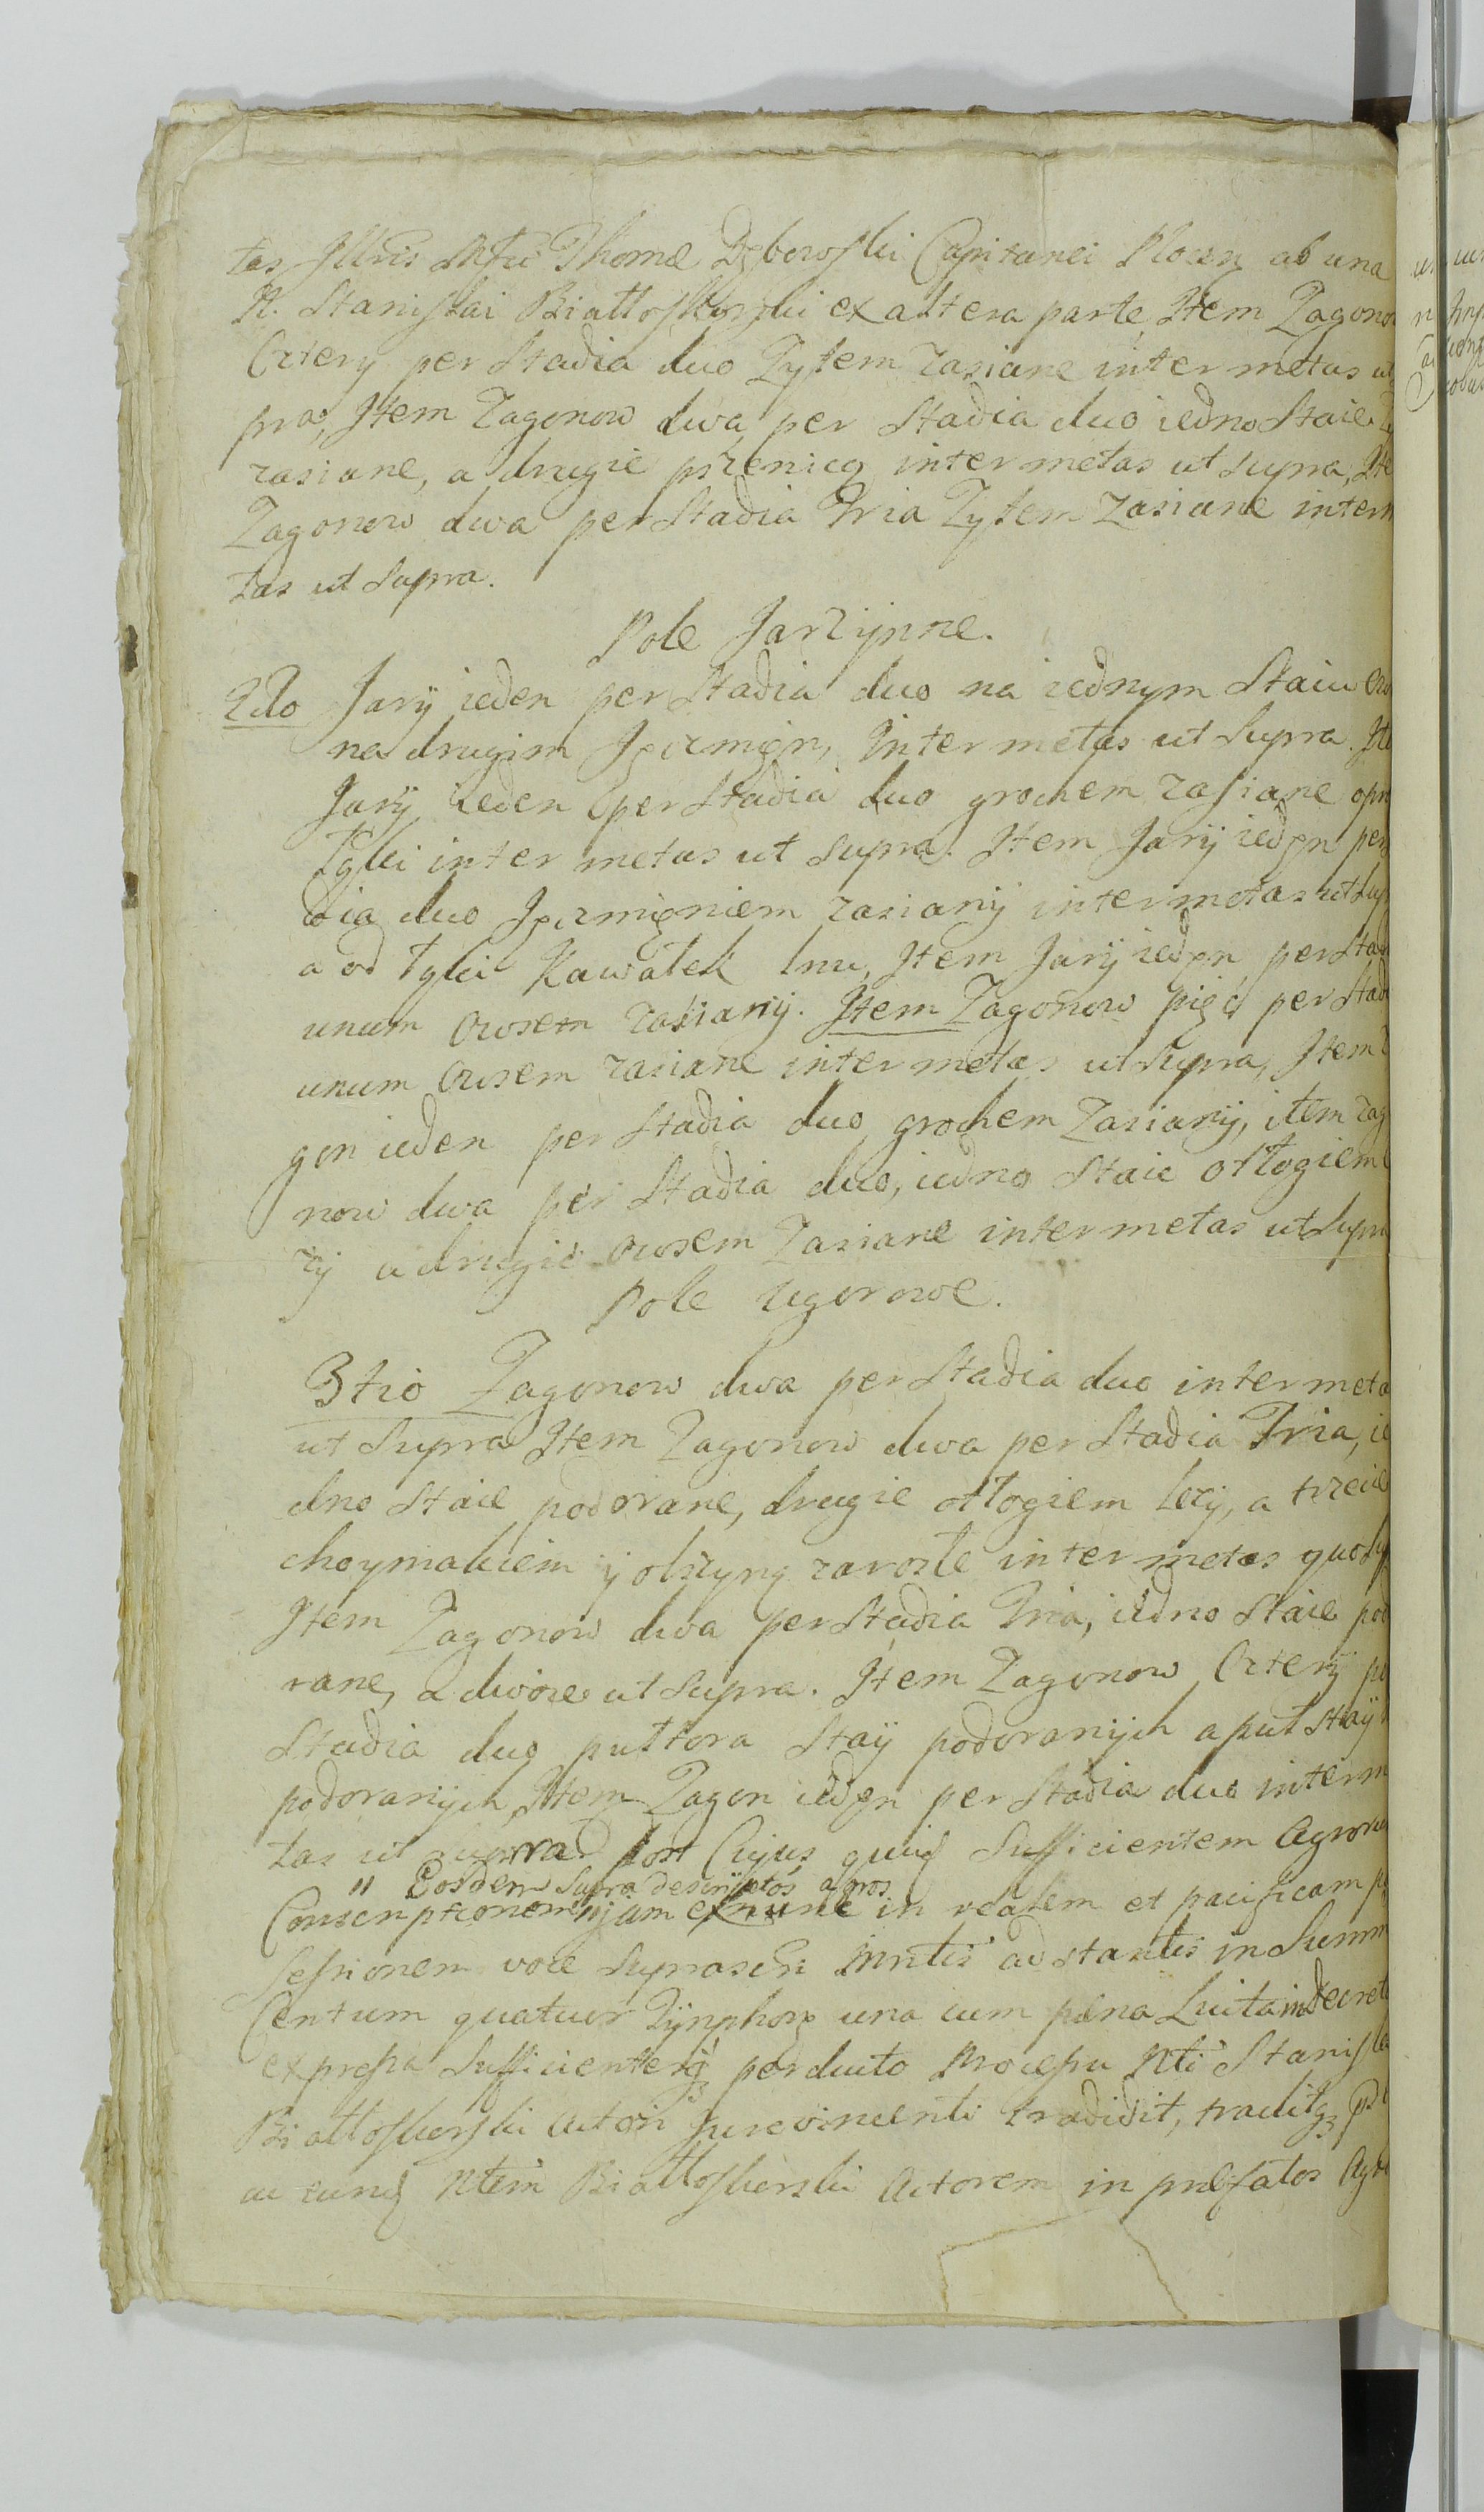 tas Illris Mfci Thomæ Dębowski Capitanei Plocen ab una
N. Stanislai Białłoskorski ex altera parte Item Zagonow
Cztery per Stadia duo Żytem zasiane inter metas ut
pra, Item Zagonow dwa per Stadia duo iedno Staie
zasiane, a drugie pszenicą inter metas ut supra, Ite
Zagonow dwa per Stadia Tria Żytem zasiane inter
tas ut Supra.
Pole Jarzÿnne.
2do Jarÿ ieden per Stadia duo na iednym Staiu
na drugim Jęczmięn, Inter metas ut Supra. Ite
Jarÿ ieden per Stadia duo grochem zasiane opr
Tylki inter metas ut supra. Item Jarÿ iedęn per
dia duo Jęczmięniem zasianÿ inter metas ut Sup
a od Tylki Kawałek lnu, Item Jarÿ iedęn per Sta
unum Owsem zasianÿ. Item Zagonow pięć per Stad
unum Owsem zasiane inter metas ut Supra, Item
gon ieden per Stadia duo grochem Zasianÿ, item Zag
now dwa per Stadia duo, iedno Staie odłogiem
zÿ a drugie owsem Zasiane inter metas ut Supra
Pole Ugorowe.
3tio Zagonow dwa per Stadia duo inter meta
ut Supra Item Zagonow dwa per Stadia Tria, ie
dno Staie podorane, drugie odłogiem leżÿ, a trzecie
choymakiem ÿ olszyną zarosłe inter metas quo Su
Item Zagonow dwa per Stadia Tria, iedno Staie pod
rane, a dwoie ut Supra. Item Zagonow Cztery pe
Stadia duo pułtora Staÿ podoranÿch a puł Staÿ
podoranÿch, Item Zagon iedęn per Stadia duo inter m
tas ut supra. Post Cujus quid Sufficientem Agroru
" Eosdem supra descriptos agros
Conscriptionem " jam ex nunc in realem et pacificam po
sessionem voce suprascri Mnrtis adstantis in Summ
Centum quatuor Tÿnphorz una cum pæna Luita in decreto
expressa Sufficienterq perducto Processu Nti Stanisla
Białłoskorski Actori Jurevincenti tradidit, traditq per
ac eundq Ntem Białłoskorski Actorem in præfatos Agro